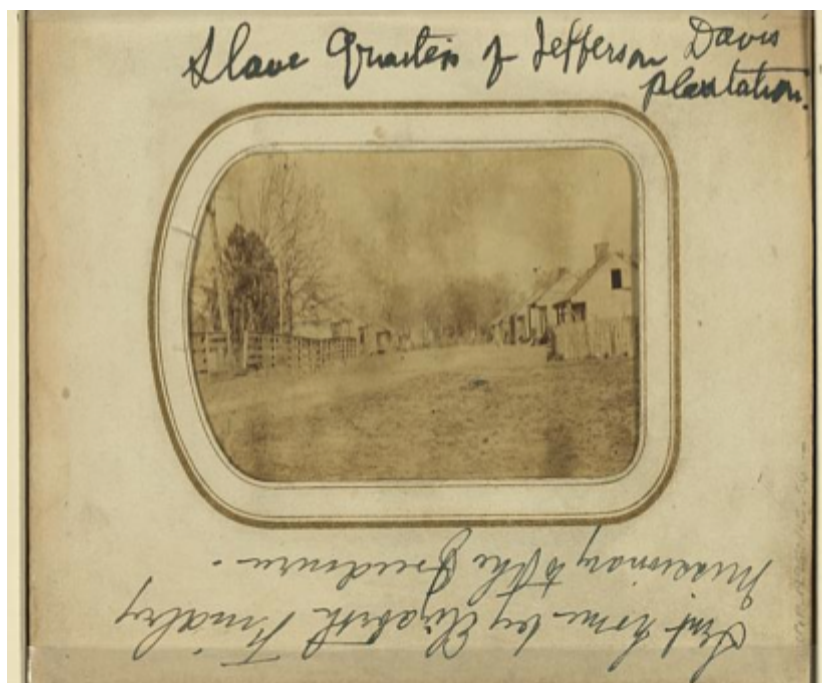 Slave Quarters of Jefferson Davis
plantation.
Sent home by Elizabeth Findley
Missionary to the Freedmen.